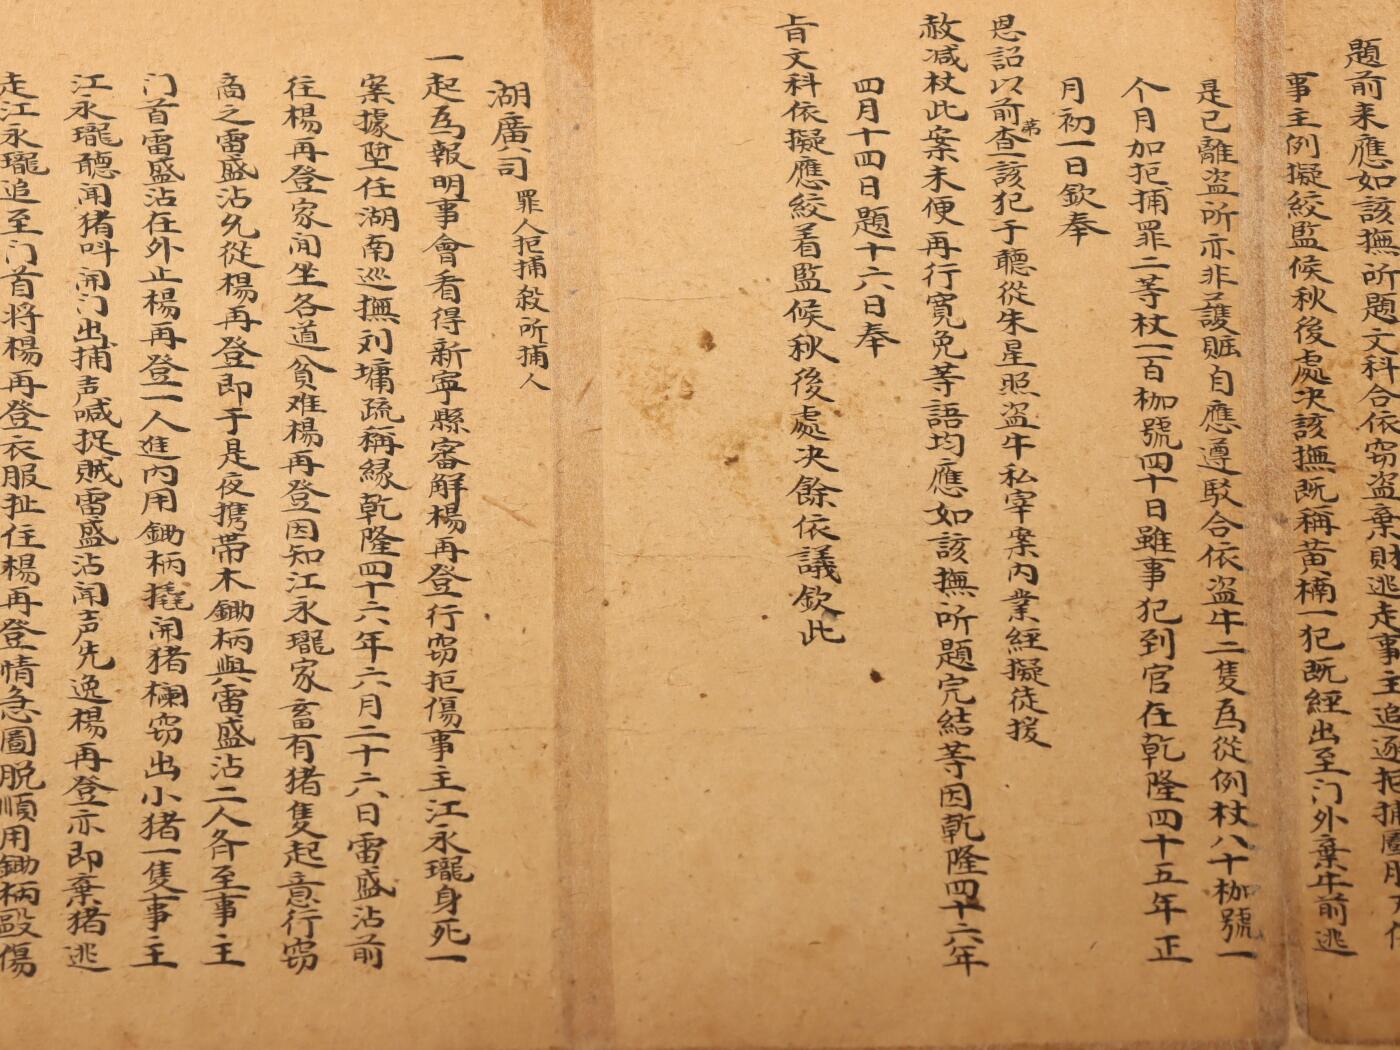 題前来應如該撫所題文科合依窃盗棄財逃走事主追逐拒捕
事主例擬絞監候秋後處决該撫既稱黄楠一犯既經出至门外棄牛前逃
是已離盗所亦非護賍自應遵駁合依盗牛二隻為從例杖八十枷號一
个月加拒捕罪二等杖一百枷號四十日雖事犯到官在乾隆四十五年正
月初一日欽奉
恩詔以前查第該犯于聽從朱星照盗牛私宰案内業經擬徒援
赦减杖此案未便再行寬免等語均應如該撫所題完結等因乾隆四十六年
四月十四日題十六日奉
㫖文科依擬應絞着監候秋後處决餘依議欽此
湖廣司 罪人拒捕殺所捕人
一起為報明事會看得新寧縣審解楊再登行窃拒傷事主江永瓏身死一
案據陞任湖南巡撫刘墉疏稱緣乾隆四十六年六月二十六日雷盛沾前
往楊再登家闲坐各道貧难楊再登因知江永瓏家畜有猪隻起意行窃
商之雷盛沾允從楊再登即于是夜携帯木鋤柄與雷盛沾二人各至事主
门首雷盛沾在外止楊再登一人進内用鋤柄撬開猪欄窃出小猪一隻事主
江永瓏聴闻猪呌開门出捕声喊捉賊雷盛沾闻声先逸楊再登亦即棄猪逃
走江永瓏追至门首将楊再登衣服扯住楊再登情急圖脱順用鋤柄毆傷